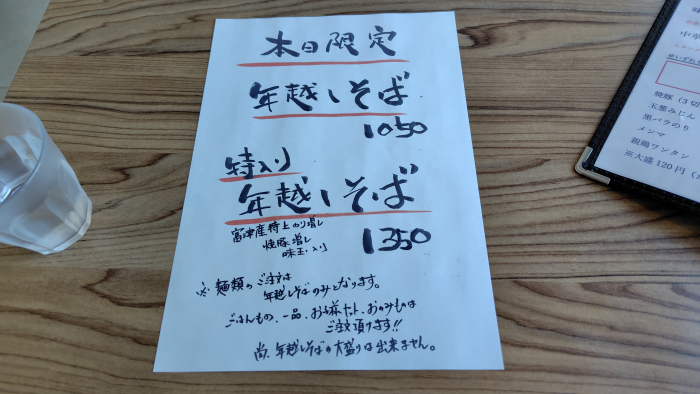 本日限定
年越しそば
1050
特入り
年越しそば
富津産特上のり増し
焼豚増し
味玉入り
1350
※麺類のご注文は
年越しそばのみとなります。
ごはんもの、一品、お子様セット、おのみもの
ご注文頂けます!!
尚、年越しそばの大盛りは出来ません。
味
中華
焼豚(3切
玉葱みじん
黒バラのり
メンマ
親鶏ワンタン
※大盛120円(